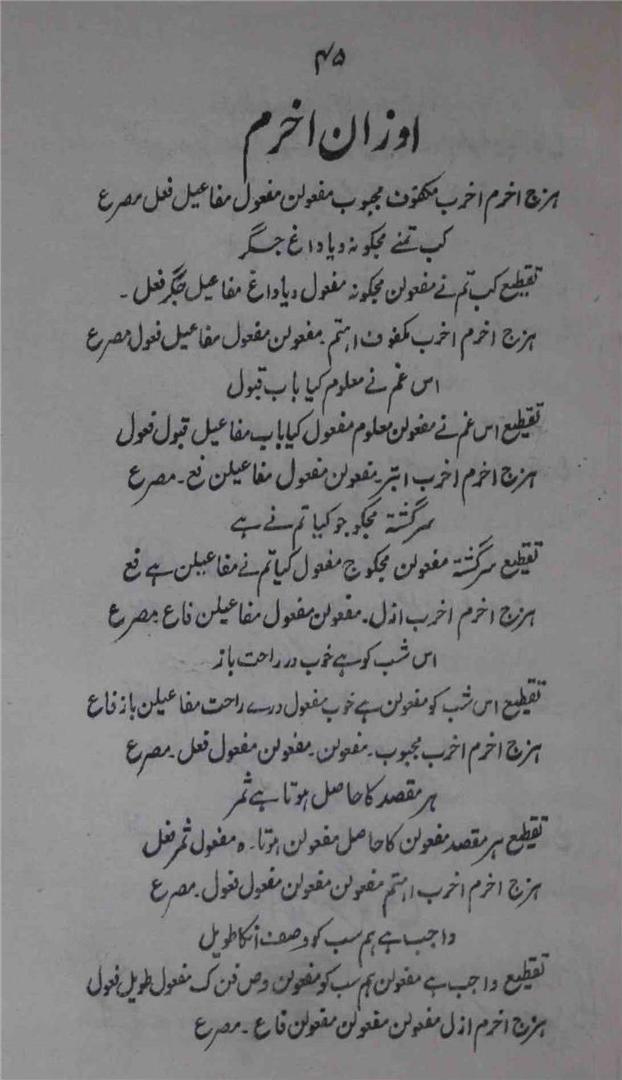 ۴۵
اوزان اخرم
ہزج اخرم اخرب مکفوف مجبوب مفعولن مفعول مفاعیل فعل مصرع
کب تمنے مجکو نہ دیا داغ جگر
تقطیع کب تم نے مفعولن مجکو نہ مفعول دیا داغ مفاعیل جگر فعل ۔
ہزج اخرم اخرب مکفوف اہتم ۔ مفعولن مفعول مفاعیل فعول مصرع
اس غم نے معلوم کیا باب قبول
تقطیع اس غم نے مفعولن معلوم مفعول کیا باب مفاعیل قبول فعول
ہزج اخرم اخرب ابتر ۔ مفعولن مفعول مفاعیلن فع ۔ مصرع
سرگشتہ مجکو جو کیا تم نے ہے
تقطیع سرگشتہ مفعولن مجکو ج مفعول کیا تم نے مفاعیلن ہے فع
ہزج اخرم اخرب ازل ۔ مفعولن مفعول مفاعیلن فاع ۔ مصرع
اس شب کو ہے خوب در راحت باز
تقطیع اس شب کو مفعولن ہے خوب مفعول درے راحت مفاعیلن باز فاع
ہزج اخرم اخرب مجبوب ۔ مفعولن ۔ مفعولن مفعول فعل ۔ مصرع
ہر مقصد کا حاصل ہوتا ہے ثمر
تقطیع ہر مقصد مفعولن کا حاصل مفعولن ہوتا ۔ ہ مفعول ثمر فعل
ہزج اخرم اخرب اہتم مفعولن مفعولن مفعول فعول ۔ مصرع
واجب ہے ہم سب کو وصف انکا طویل
تقطیع واجب ہے مفعولن ہم سب کو مفعولن وص فن ک مفعول طویل فعول
ہزج اخرم ازل مفعولن مفعولن مفعولن فاع ۔ مصرع